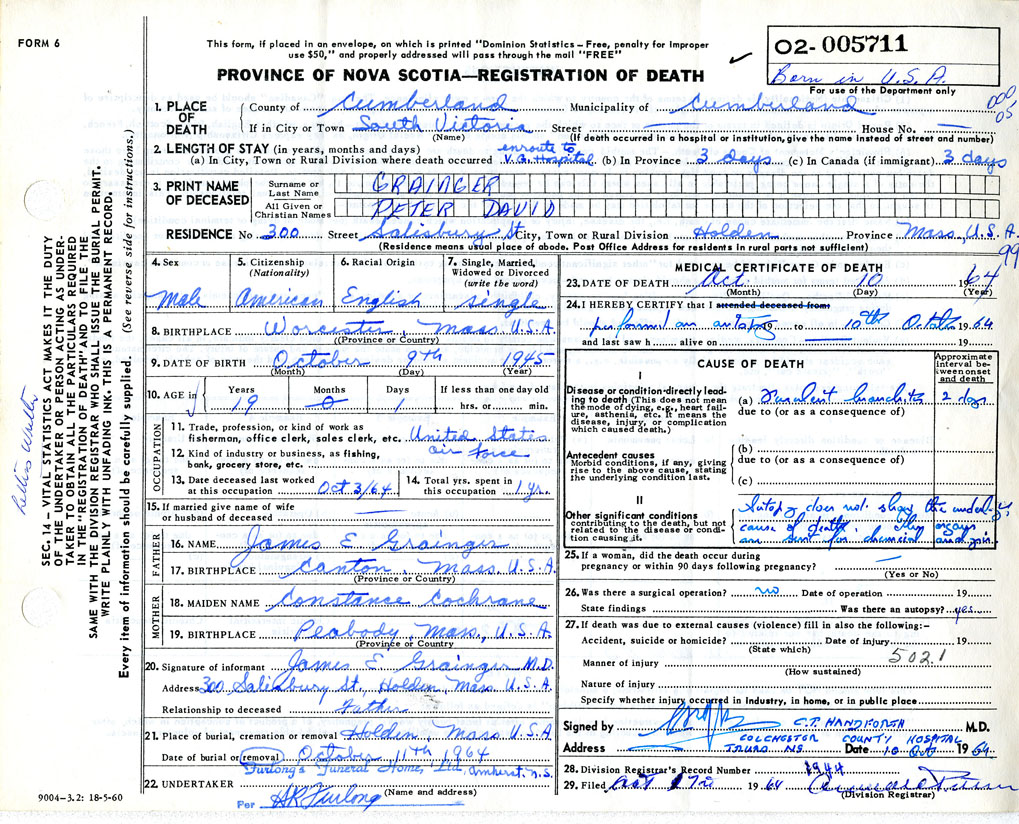 FORM 6
This form, if placed in an envelope, on which is printed "Dominion Statistics – Free, penalty for improper
use $50," and properly addressed will pass through the mail "FREE"
02-005711
Born in U.S.A.
For use of the Department only
PROVINCE OF NOVA SCOTIA—REGISTRATION OF DEATH
1. PLACE OF DEATH
County of Cumberland Municipality of Cumberland
000
05
If in City or Town South Victoria Street House No.
(Name) (If death occurred in a hospital or institution, give the name instead of street and number)
2. LENGTH OF STAY (in years, months and days)
enroute to
(a) In City, Town or Rural Division where death occurred V.G. Hospital (b) In Province 3 days (c) In Canada (if immigrant) 3 days
3. PRINT NAME OF DECEASED
Surname or Last Name GRAINGER
All Given or Christian Names PETER DAVID
RESIDENCE No. 300 Street Salisbury St City, Town or Rural Division Holden Province Mass., U.S.A.
(Residence means usual place of abode. Post Office Address for residents in rural parts not sufficient)
99
4. Sex
male
5. Citizenship
(Nationality)
American
6. Racial Origin
English
7. Single, Married,
Widowed or Divorced
(write the word)
single
8. BIRTHPLACE Worcester, Mass. U.S.A.
(Province or Country)
9. DATE OF BIRTH October 9th 1945
(Month) (Day) (Year)
10. AGE in
Years Months Days If less than one day old
19 0 1 hrs. or min.
OCCUPATION
11. Trade, profession, or kind of work as
fisherman, office clerk, sales clerk, etc. United States
12. Kind of industry or business, as fishing,
bank, grocery store, etc. air Force
13. Date deceased last worked
at this occupation Oct 3/64
14. Total yrs. spent in
this occupation 1 yr.
15. If married give name of wife
or husband of deceased
FATHER
16. NAME James E Grainger
17. BIRTHPLACE Canton, Mass. U.S.A.
(Province or Country)
MOTHER
18. MAIDEN NAME Constance Cochrane
19. BIRTHPLACE Peabody, Mass, U.S.A.
(Province or Country)
20. Signature of informant James E. Grainger M.D.
Address 300 Salisbury St. Holden, Mass U.S.A.
Relationship to deceased Father
21. Place of burial, cremation or removal Holden, Mass U.S.A
Date of burial or removal October 11th 1964
Furlong's Funeral Home, Ltd, Amherst, N.S.
22. UNDERTAKER
(Name and address)
Per A R Furlong
9004–3.2: 18-5-60
MEDICAL CERTIFICATE OF DEATH
23. DATE OF DEATH Oct. 10 1964
(Month) (Day) (Year)
24. I HEREBY CERTIFY that I attended deceased from
performed an autopsy 19 to 10th October 1964
and last saw h alive on 19
CAUSE OF DEATH
Approximate interval between onset and death
I
Disease or condition directly leading to death (This does not mean the mode of dying, e.g., heart failure, asthenia, etc. It means the disease, injury, or complication which caused death.)
(a) Purulent bronchitis 2 days
due to (or as a consequence of)
Antecedent causes
Morbid conditions, if any, giving rise to the above cause, stating the underlying condition last.
(b)
due to (or as a consequence of)
(c)
II
Other significant conditions
contributing to the death, but not related to the disease or condition causing it.
Autopsy does not show the underlying
cause of death. The organs
are sent for chemical analysis.
25. If a woman, did the death occur during
pregnancy or within 90 days following pregnancy?
(Yes or No)
26. Was there a surgical operation? no Date of operation 19
State findings Was there an autopsy? yes
27. If death was due to external causes (violence) fill in also the following:–
Accident, suicide or homicide? Date of injury 19
(State which)
502.1
Manner of injury
(How sustained)
Nature of injury
Specify whether injury occurred in industry, in home, or in public place
Signed by C.T. HANDFORTH M.D.
COLCHESTER COUNTY HOSPITAL
Address TRURO NS Date 10 Oct 1964
28. Division Registrar's Record Number 1944
29. Filed Oct 1964
(Division Registrar)
SEC. 14 – VITAL STATISTICS ACT MAKES IT THE DUTY
OF THE UNDERTAKER OR PERSON ACTING AS UNDERTAKER
TO OBTAIN ALL THE PARTICULARS REQUIRED
IN THE "REGISTRATION OF DEATH" AND TO FILE THE
SAME WITH THE DIVISION REGISTRAR WHO SHALL ISSUE THE BURIAL PERMIT.
WRITE PLAINLY WITH UNFADING INK. THIS IS A PERMANENT RECORD.
Every item of information should be carefully supplied. (See reverse side for instructions.)